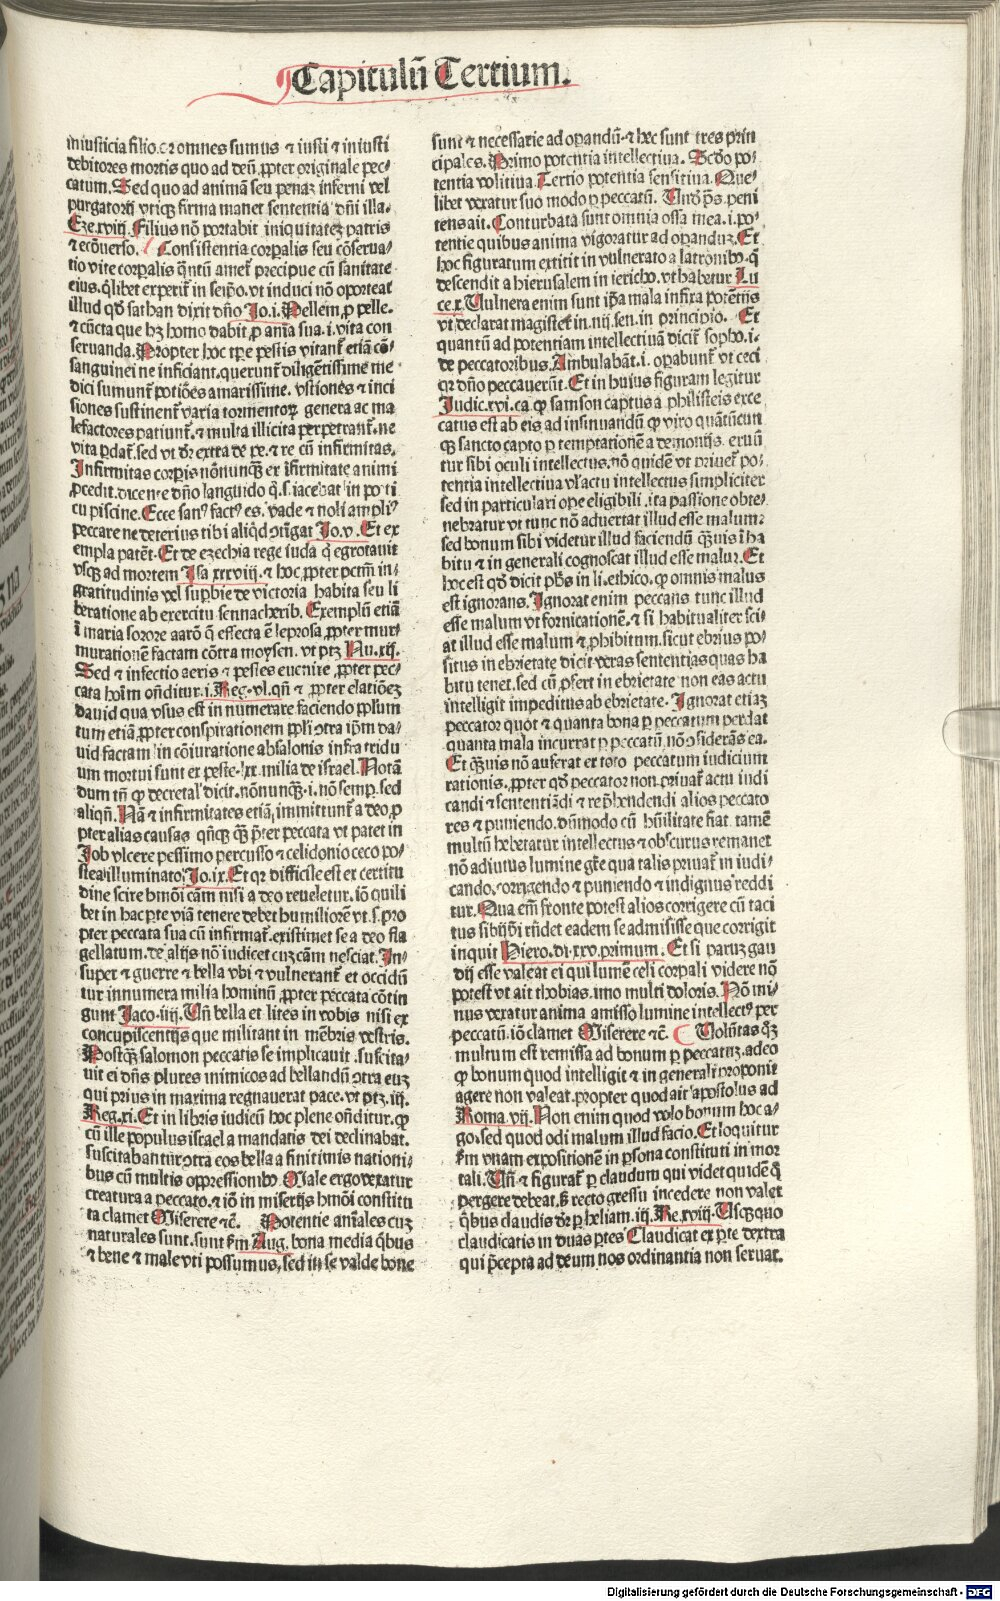 Capitulū Tertium.
iniusticia filio. et omnes sumus ⁊ iusti ⁊ iniusti
debitores mortis quo ad deū ꝓpter originale pec-
catum. Sed quo ad animā seu penaꝫ inferni vel
purgatorij vtiqꝫ firma manet sententia dn̄i illa.
Eze.xviij. Filius nō portabit iniquitateꝫ patris
⁊ ecōuerso. Consistentia corꝑalis seu cōserua-
tio vite corꝑalis q̄ntū amet᷑ precipue cū sanitate
eius. q̄libet experit᷑ in seip̄o. vt induci nō oporteat
illud qd̄ sathan dixit dn̄o Jo.i. Pellem ꝓ pelle.
⁊ cūcta que hꝫ homo dabit ꝓ aīa sua .i. vita con
seruanda. Propter hoc tꝑe pestis vitant᷑ etiā cō-
sanguinei ne inficiant. querunt᷑ diligētissime me
dici sumunt᷑ potiōes amarissime. vstiones ⁊ inci
siones sustinent᷑ varia tormentoꝝ genera ac ma
lefactores patiunt᷑. ⁊ multa illicita perpetrant᷑. ne
vita ꝑdat᷑. sed vt dr̄ extra de pe. ⁊ re cū infirmitas.
Infirmitas corꝑis nōnunqꝫ ex īfirmitate animi
ꝓcedit. dicente dn̄o languido q̄ .s. iacebat in porti
cu piscine. Ecce sanꝰ factꝰ es. vade ⁊ noli ampliꝰ
peccare ne deterius tibi aliqd̄ ↄtīgat Jo.v. Et ex
empla patēt. Et de ezechia rege iuda q̄ egrotauit
vsqꝫ ad mortem Isa xxxviij. ⁊ hoc ꝓpter pctm̄ in-
gratitudinis vel suꝑbie de victoria habita seu li
beratione ab exercitu sennacherib. Exemplū etiā
ī maria sorore aarō q̄ effecta ē leprosa ꝓpter mur-
murationē factam cōtra moysen. vt ptꝫ Nu.xij.
Sed ⁊ infectio aeris ⁊ pestes euenire ꝓpter pec-
cata hoīm on̄ditur .i. Reg.vl. qn̄ ⁊ ꝓpter elatiōeꝫ
dauid qua vsus est in numerare faciendo ppl̄um
tum etiā ꝓpter conspirationem ppl̄i ↄtra ip̄m da-
uid factam in cōiuratione absalonis infra tridu
um mortui sunt ex peste .lxx. milia de israel. Notā
dum tn̄ ꝙ decretal᷑ dicit. nōnunqꝫ .i. nō semꝑ. sed
aliqn̄. Nā ⁊ infirmitates etiā immittunt᷑ a deo ꝓ
pter alias causas qn̄qꝫ qꝫ p̄ter peccata vt patet in
Job vlcere pessimo percusso ⁊ celidonio ceco po-
stea illuminato. Jo.ix. Et qr difficile est ex certitu
dine scire hmōi cām nisi a deo reueletur. iō quili
bet in hac ꝑte viā tenere debet humiliorē vt .s. pro
pter peccata sua cū infirmat᷑. existimet se a deo fla
gellatum. de alijs nō iudicet cuꝫ cām nesciat. In-
super ⁊ guerre ⁊ bella vbi ⁊ vulnerant᷑ et occidū
tur innumera milia hominū ꝓpter peccata cōtin
gunt Jaco.iiij. Vn̄ bella et lites in vobis nisi ex
concupiscentijs que militant in mēbris vestris.
Postqꝫ salomon peccatis se implicauit. suscita-
uit ei dn̄s plures inimicos ad bellandū ↄtra euꝫ
qui prius in maxima regnauerat pace. vt ptꝫ .iij.
Reg.xi. Et in libris iudicū hoc plene on̄ditur. ꝙ
cū ille populus israel a mandatis dei declinabat.
suscitabantur ↄtra eos bella a finitimis nationi-
bus cū multis oppressionibꝰ. Male ergo vexatur
creatura a peccato. ⁊ iō in miserijs hmōi constitu
ta clamet Miserere ⁊c̄. Potentie anīales cuꝫ
naturales sunt. sunt sm̄ Aug. bona media q̄bus
⁊ bene ⁊ male vti possumus, sed in se valde bone
sunt ⁊ necessarie ad oꝑandū. ⁊ hec sunt tres prin
cipales. Primo potentia intellectiua. Scd̄o po-
tentia volitiua. Tertio potentia sensitiua. Que-
libet vexatur suo modo ꝑ peccatū. Vn̄ ꝓp̄s peni
tens ait. Conturbata sunt omnia ossa mea .i. po-
tentie quibus anima vigoratur ad oꝑanduꝫ. Et
hoc figuratum extitit in vulnerato a latronibꝰ. q̄
descendit a hierusalem in iericho. vt habetur Lu
ce.x. Vulnera enim sunt ip̄a mala infixa potētijs
vt declarat magister in .iiij. sen. in principio. Et
quantū ad potentiam intellectiuā dicit᷑ sopho.i-
de peccatoribus. Ambulabāt .i. oꝑabunt᷑ vt ceci
qr dn̄o peccauerūt. Et in huius figuram legitur
Judic.xvi.ca. ꝙ samson captus a philisteis exce
catus est ab eis ad insinuandū ꝙ viro quātūcun
qꝫ sancto capto ꝑ temptationē a demonijs. eruū
tur sibi oculi intellectus. nō quidē vt priuet᷑ po-
tentia intellectiua vl̓ actu intellectus simpliciter
sed in particulari oꝑe eligibili. ita passione obte-
nebratur vt tunc nō aduertat illud esse malum:
sed bonum sibi videtur illud faciendū qꝫuis ī ha
bitu ⁊ in generali cognoscat illud esse malū. Et
hoc est qd̄ dicit ph̄s in li. ethico. ꝙ omnis malus
est ignorans. Ignorat enim peccans tunc illud
esse malum vt fornicationē. ⁊ si habitualiter sci-
at illud esse malum ⁊ ꝓhibitum. sicut ebrius po-
situs in ebrietate dicit veras sententias quas ha
bitu tenet. sed cū ꝓfert in ebrietate non eas actu
intelligit impeditus ab ebrietate. Ignorat etiaꝫ
peccator quot ⁊ quanta bona ꝑ peccatum perdat
quanta mala incurrat ꝑ peccatū. nō ↄsiderās ea.
Et qꝫuis nō auferat ex toto peccatum iudicium
rationis. ꝓpter qd̄ peccator non priuat᷑ actu iudi
candi ⁊ sententiādi ⁊ rep̄hendendi alios peccato
res ⁊ puniendo. dūmodo cū hūilitate fiat. tamē
multū hebetatur intellectus ⁊ obscurus remanet
nō adiutus lumine gr̄e qua talis priuat᷑ in iudi-
cando. corrigendo ⁊ puniendo ⁊ indignus reddi
tur. Qua em̄ fronte potest alios corrigere cū taci
tus sibijp̄i rn̄det eadem se admisisse que corrigit
inquit Hiero.di.xxv.primum. Et si paruꝫ gau
dij esse valeat ei qui lumē celi corꝑali videre nō
potest vt ait thobias. imo multi doloris. Nō mi-
nus vexatur anima amisso lumine intellectꝰ per
peccatū. iō clamet Miserere ⁊c̄. Volūtas qꝫ
multum est remissa ad bonum ꝑ peccatuꝫ. adeo
ꝙ bonum quod intelligit ⁊ in generali proponit
agere non valeat. propter quod ait apostolus ad
Roma.vij. Non enim quod volo bonum hoc a-
go. sed quod odi malum illud facio. Et loquitur
sm̄ vnam expositionem in ꝑsona constituti in mor
tali. Vn̄ ⁊ figurat᷑ ꝑ claudum qui videt quidē q̄
pergere debeat. sꝫ recto gressu incedere non valet
q̄bus claudis dr̄ ꝑ heliam .iij.Re.xviij. Vsqꝫquo
claudicatis in duas ꝑtes Claudicat ex ꝑte dextra
qui p̄cepta ad deum nos ordinantia non seruat.
Digitalisierung gefördert durch die Deutsche Forschungsgemeinschaft - DFG